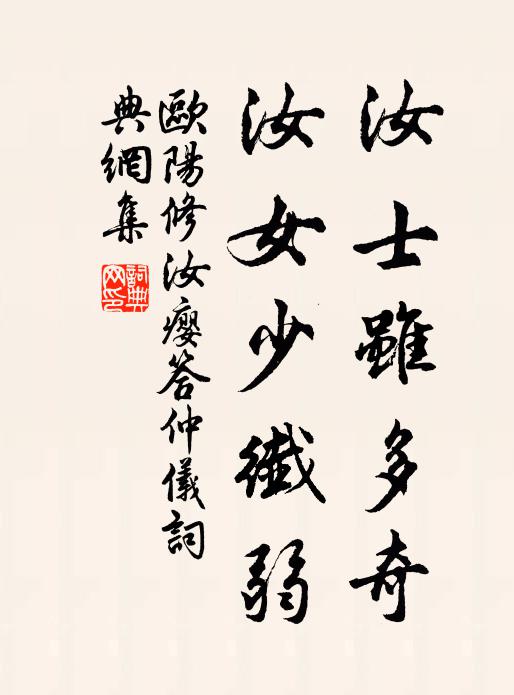 汝士雖多奇
汝女少纖弱
歐陽修汝癭答仲儀詞
典網集
詞典网印